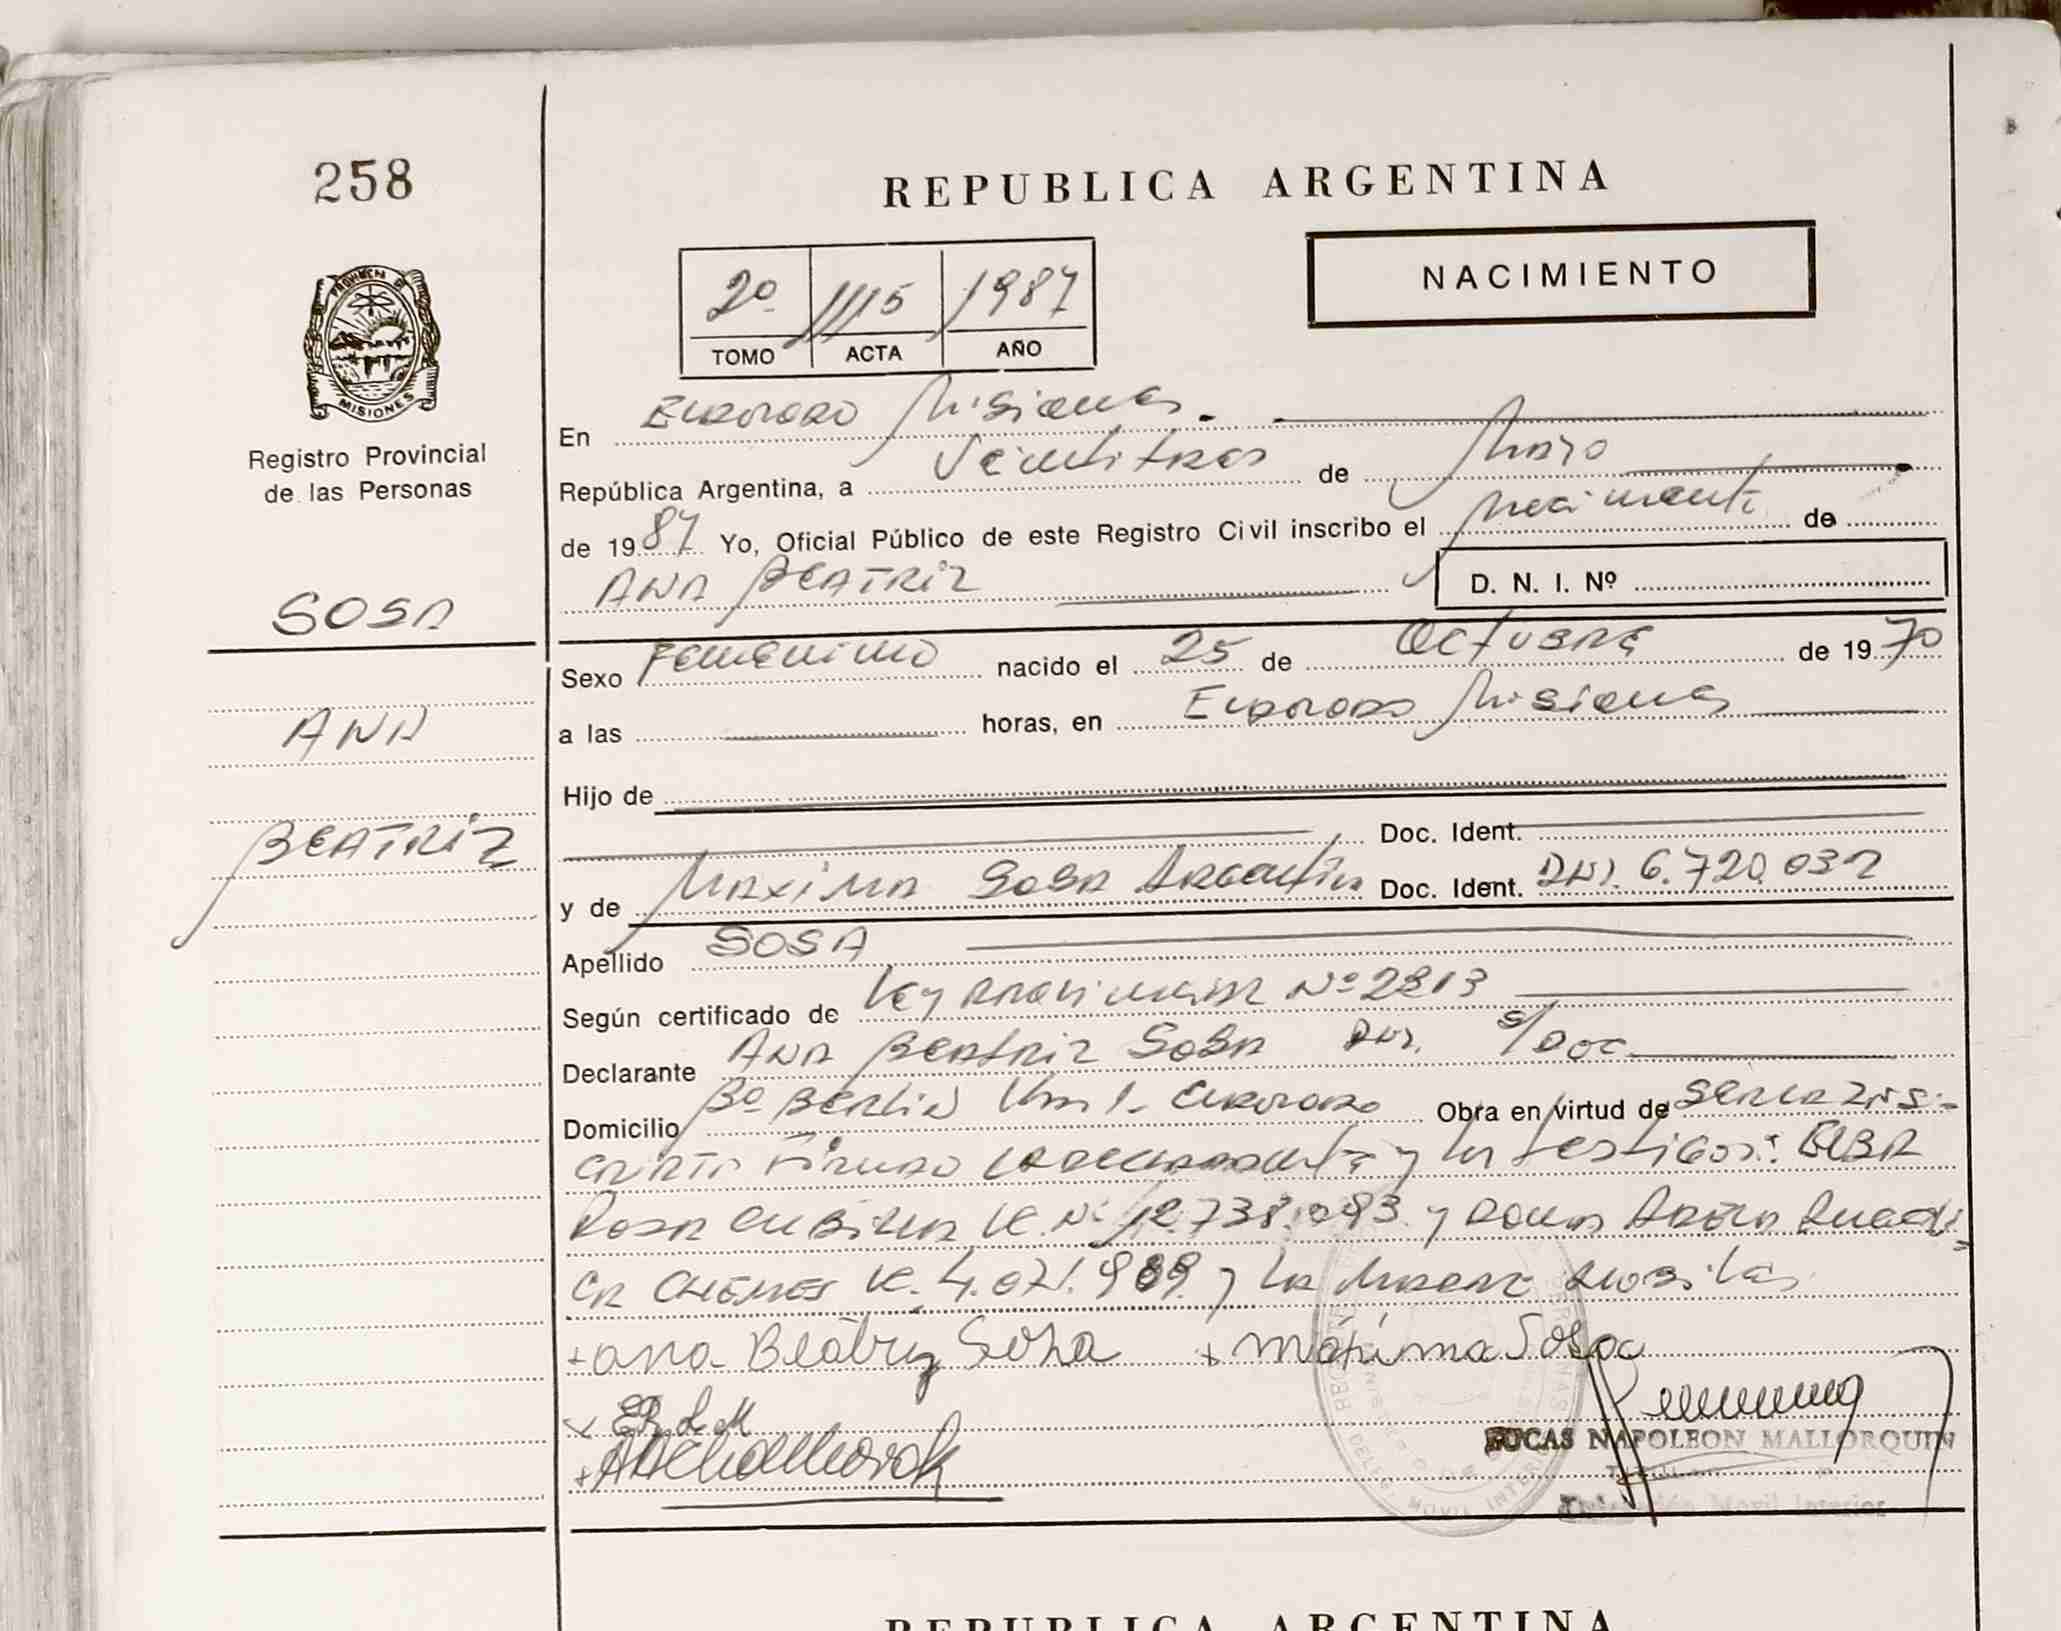 258
REPUBLICA ARGENTINA
NACIMIENTO
2º 1115 1987
TOMO ACTA AÑO
PROVINCIA DE
MISIONES
Registro Provincial
de las Personas
SOSA
ANA
BEATRIZ
En ELDORADO Misiones.
República Argentina, a Veintitres de Mayo
de 1987 Yo, Oficial Público de este Registro Civil inscribo el de
ANA BEATRIZ D. N. I. Nº
Sexo Femenino nacido el 25 de OCTUBRE de 1970
a las horas, en ELDORADO Misiones
Hijo de
Doc. Ident.
y de MAXIMA SOSA Argentina Doc. Ident. DNI. 6.720.032
Apellido SOSA
Según certificado de Ley Nº 2813
Declarante ANA BEATRIZ SOSA DNI. S/DOC
Domicilio Bº BERLIN Km 1- ELDORADO Obra en virtud de
y los testigos: ELBA
ROSA Nº 12.738.093 y
4.071.989 y la Madre
+ ana Beatriz Sosa + máxima Sosa
LUCAS NAPOLEON MALLORQUIN
Movil Interior
REPUBLICA ARGENTINA